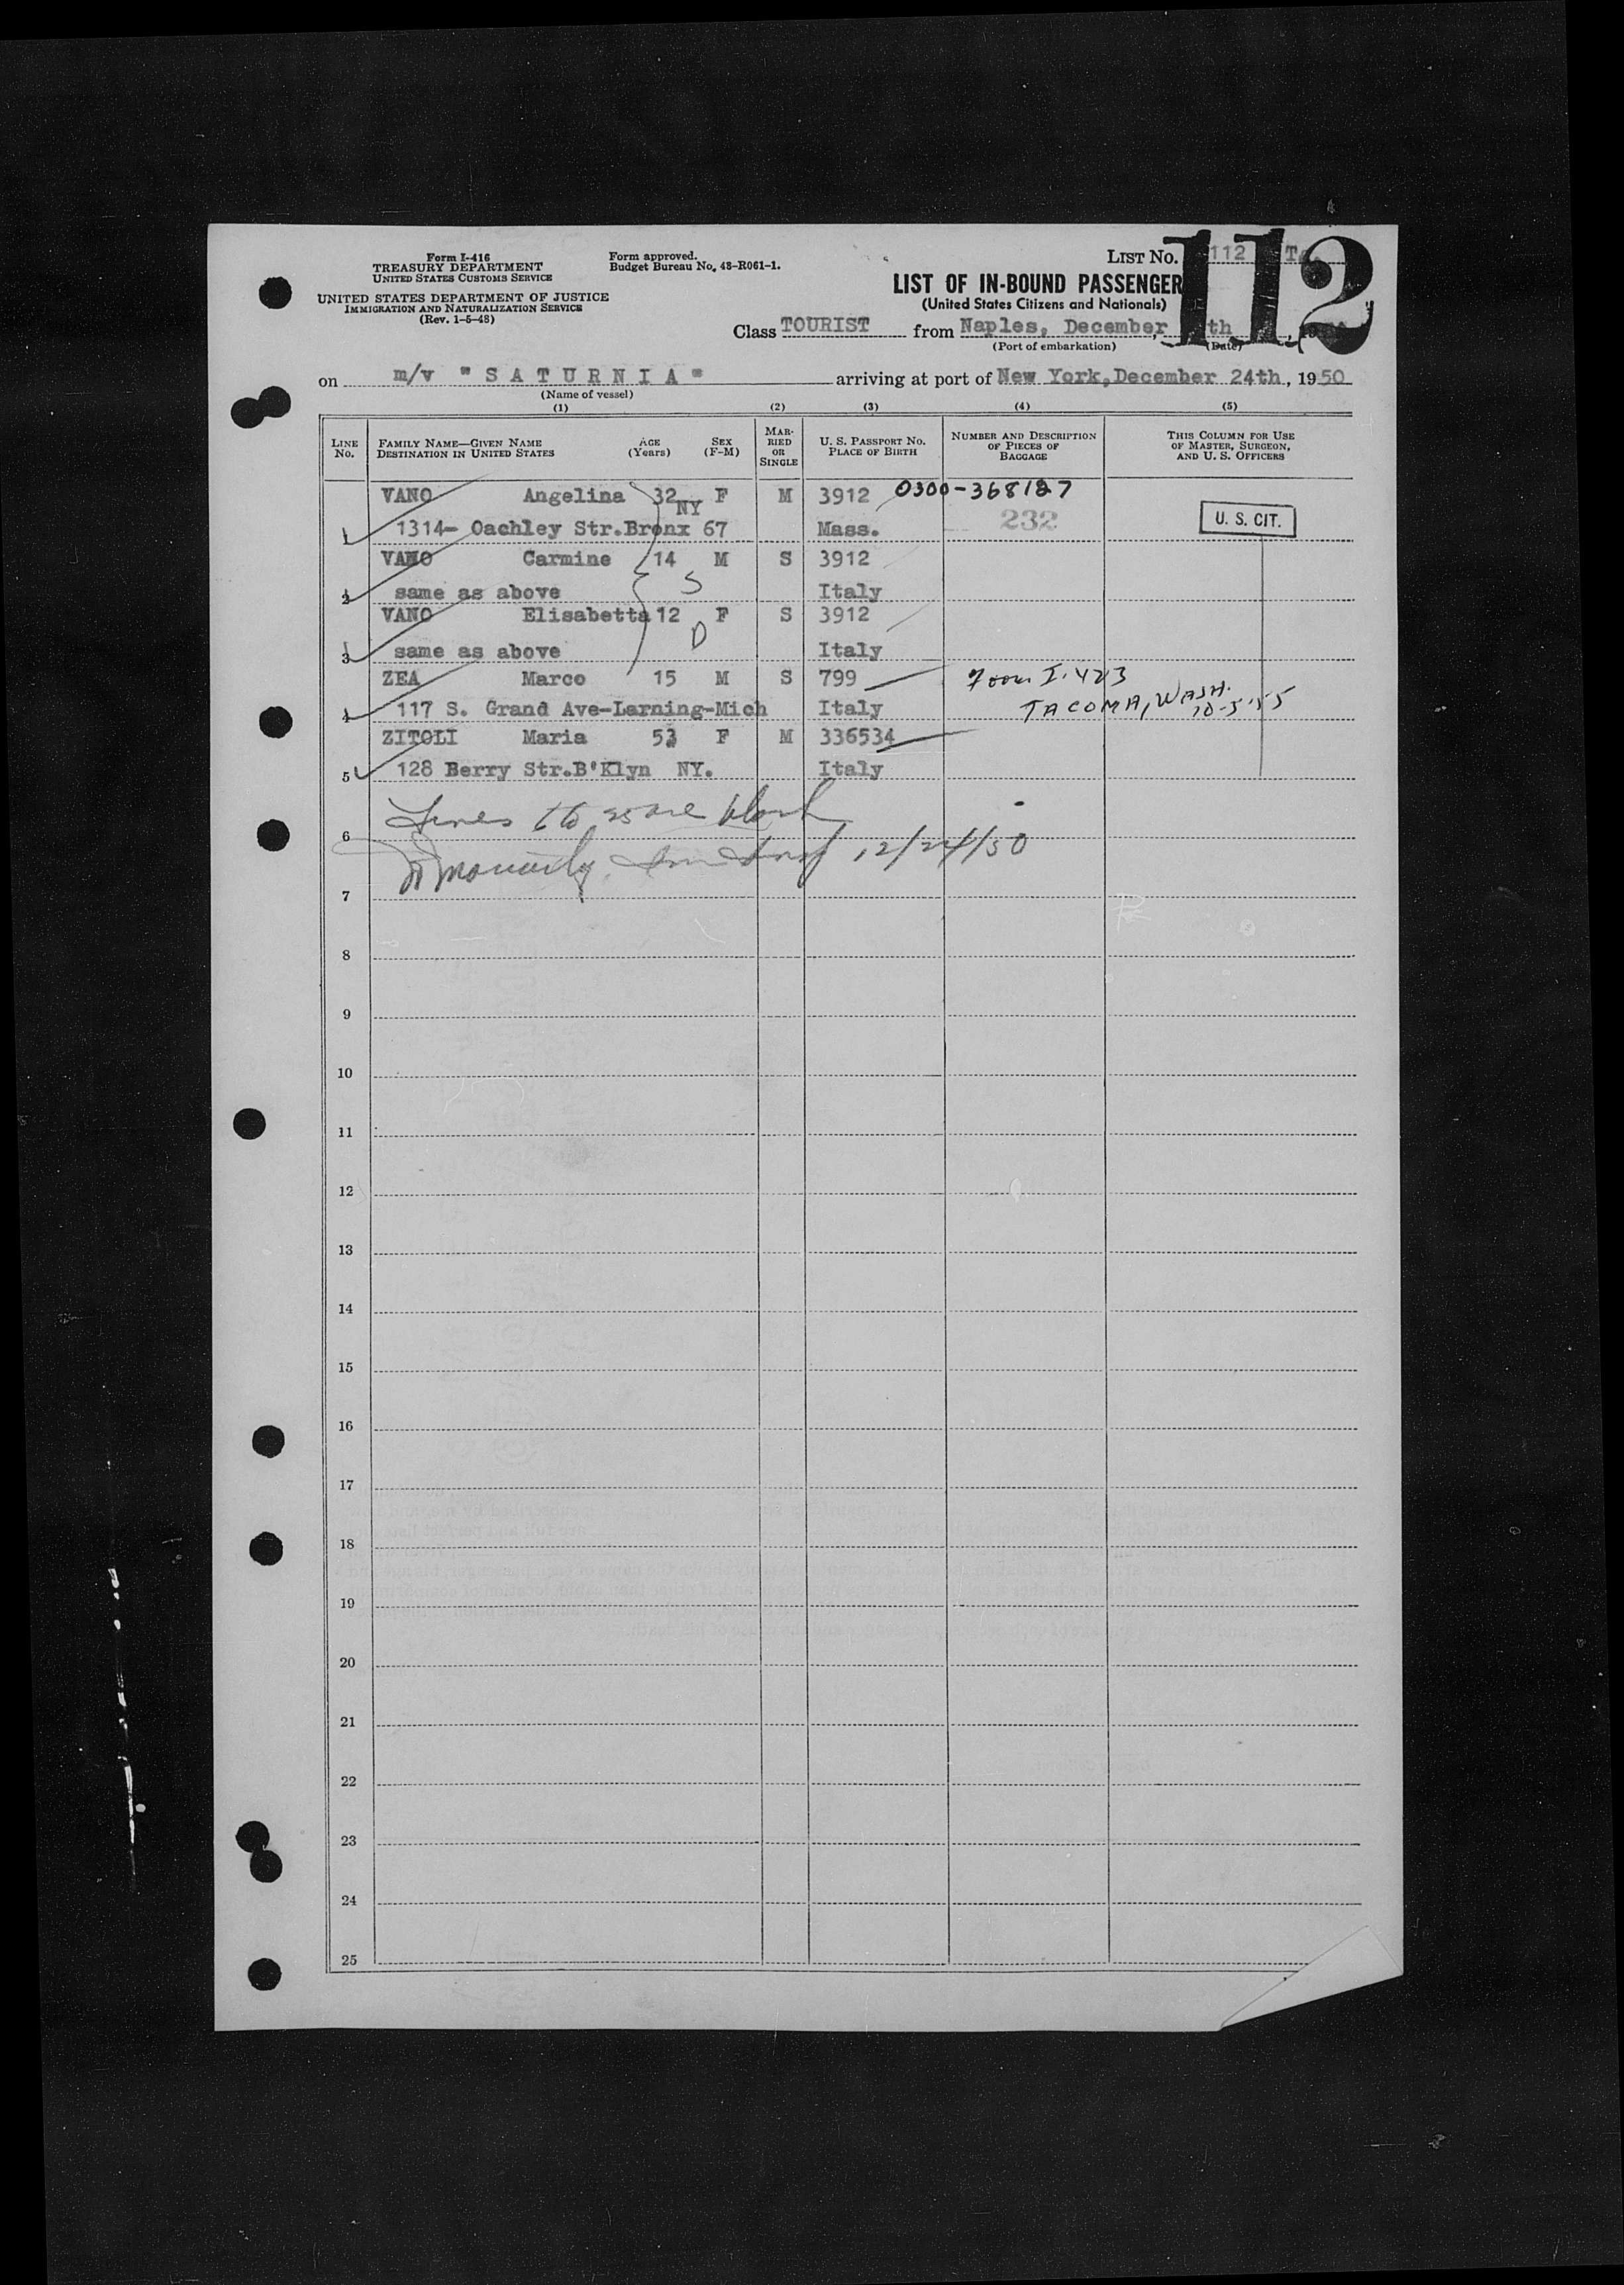 Form I-416
TREASURY DEPARTMENT
UNITED STATES CUSTOMS SERVICE
UNITED STATES DEPARTMENT OF JUSTICE
IMMIGRATION AND NATURALIZATION SERVICE
(Rev. 1-5-48)
Form approved.
Budget Bureau No. 43-R061-1.
LIST No. 112 T
112
LIST OF IN-BOUND PASSENGER
(United States Citizens and Nationals)
Class TOURIST from Naples, December, th, 19
(Port of embarkation) (Date)
on m/v "SATURNIA" arriving at port of New York, December 24th, 1950
(Name of vessel)
(1) (2) (3) (4) (5)
LINE No. FAMILY NAME—GIVEN NAME DESTINATION IN UNITED STATES AGE (Years) SEX (F-M) MARRIED OR SINGLE U. S. PASSPORT No. PLACE OF BIRTH NUMBER AND DESCRIPTION OF PIECES OF BAGGAGE THIS COLUMN FOR USE OF MASTER, SURGEON, AND U. S. OFFICERS
VANO Angelina 32 F M 3912 0300-368127
1 1314- Oachley Str.Bronx 67 NY Mass. 232 U. S. CIT.
VANO Carmine 14 M S 3912
2 same as above S Italy
VANO Elisabetta 12 F S 3912
3 same as above D Italy
ZEA Marco 15 M S 799 Form I-423
4 117 S. Grand Ave-Larning-Mich Italy TACOMA, WASH. 10-5-55
ZITOLI Maria 53 F M 336534
5 128 Berry Str.B'Klyn NY. Italy
Lines 6 to 25 are blank
6
12/24/50
7
8
9
10
11
12
13
14
15
16
17
18
19
20
21
22
23
24
25